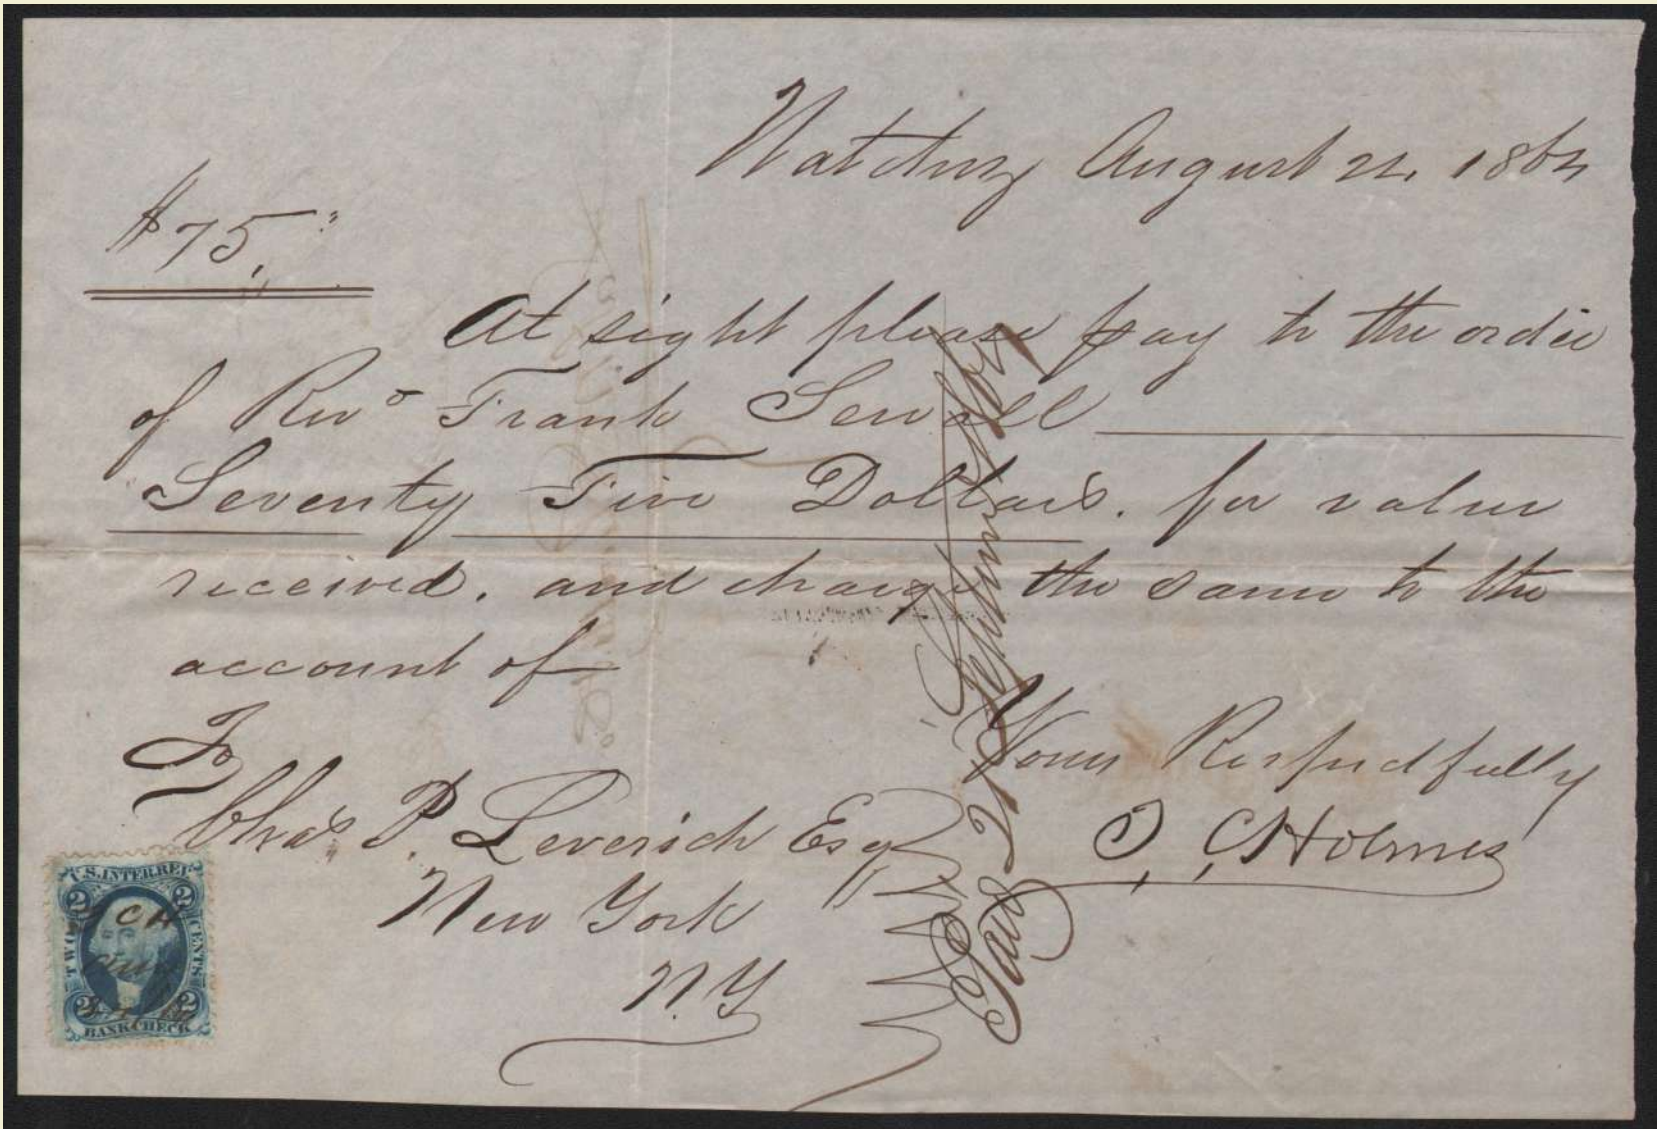 Natchez August 22. 1864
$75.
At sight please pay to the order
of Revd Frank Sewall
Seventy Five Dollars. for value
received. and charge the same to the
account of
Yours Respectfully
J. C. Holmes
To
Chas P. Leverich Esq
New York
N.Y
Paid 21 September /64
U.S. INTER. REV.
2 2
TWO CENTS
JCH
Aug
2 2
BANK CHECK